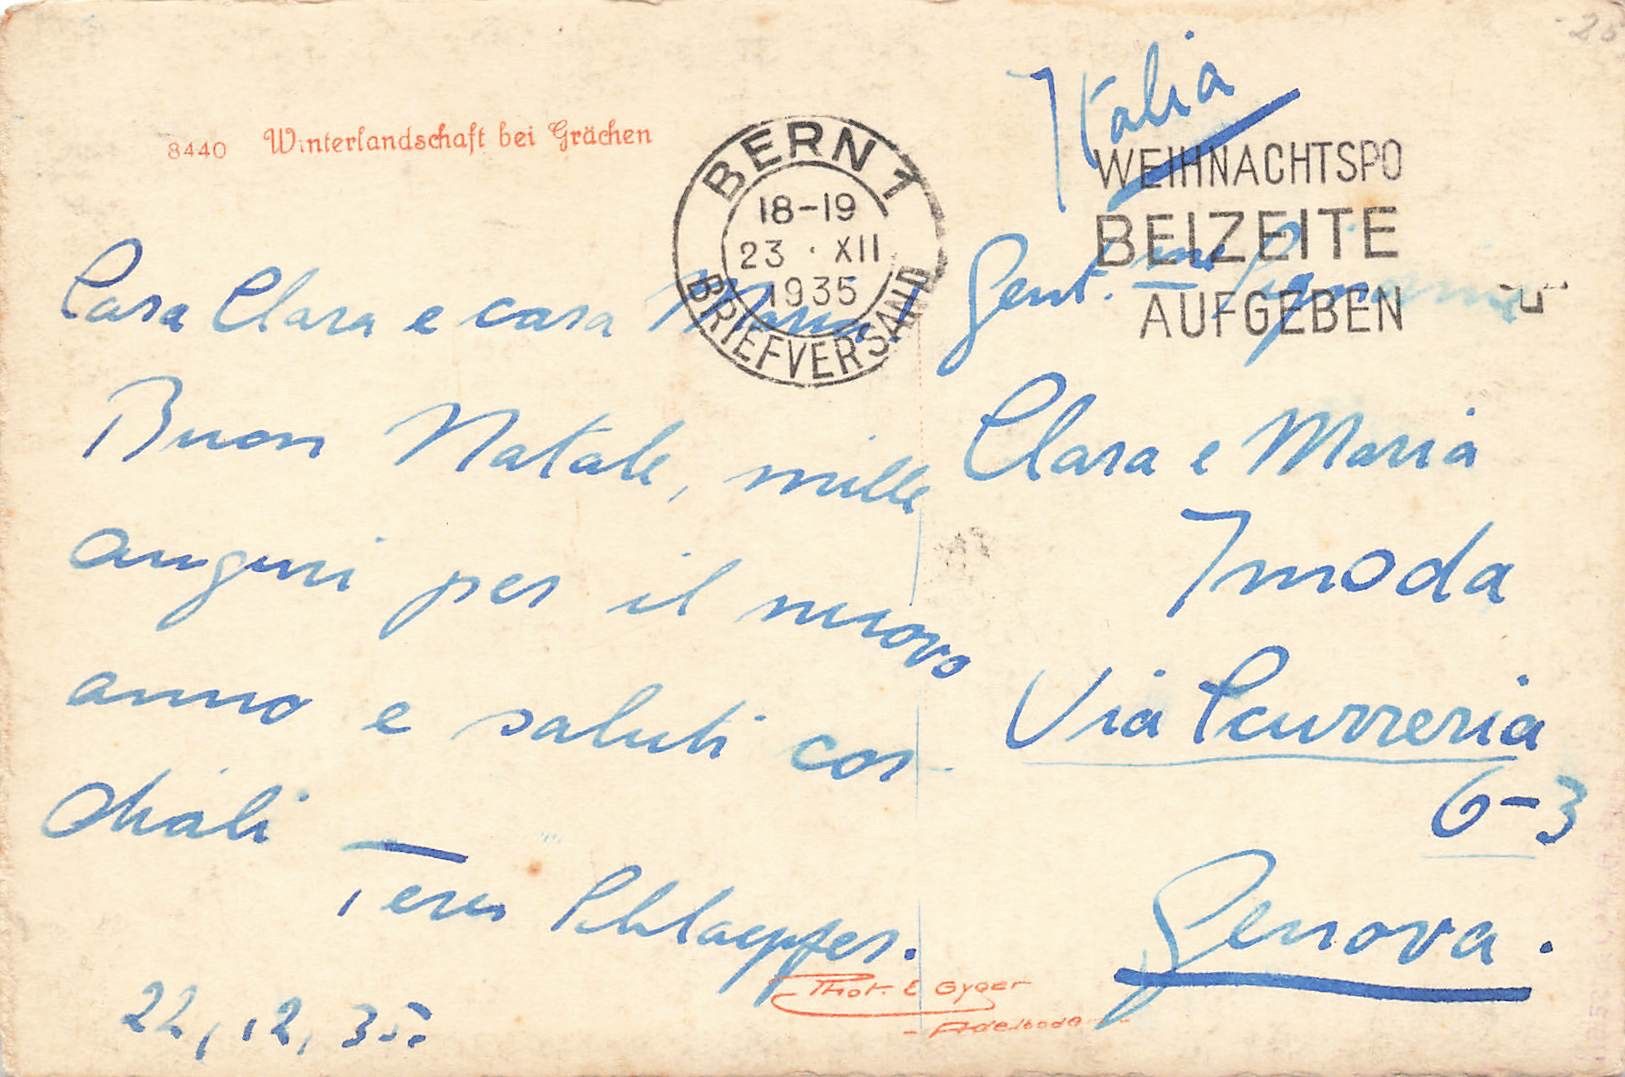 8440 Winterlandschaft bei Grächen
BERN 1
18-19
23 · XII
1935
BRIEFVERSAND
WEIHNACHTSPO
BEIZEITE
AUFGEBEN
Cara Clara e cara Maria!
Buon Natale, mille
auguri per il nuovo
anno e saluti cor-
diali
Schlaepfer.
22, 12, 35.
Italia
Gent. me Signorine
Clara e Maria
Imoda
Via Scurreria
6-3
Genova.
Phot. E Gyger
Adelboden